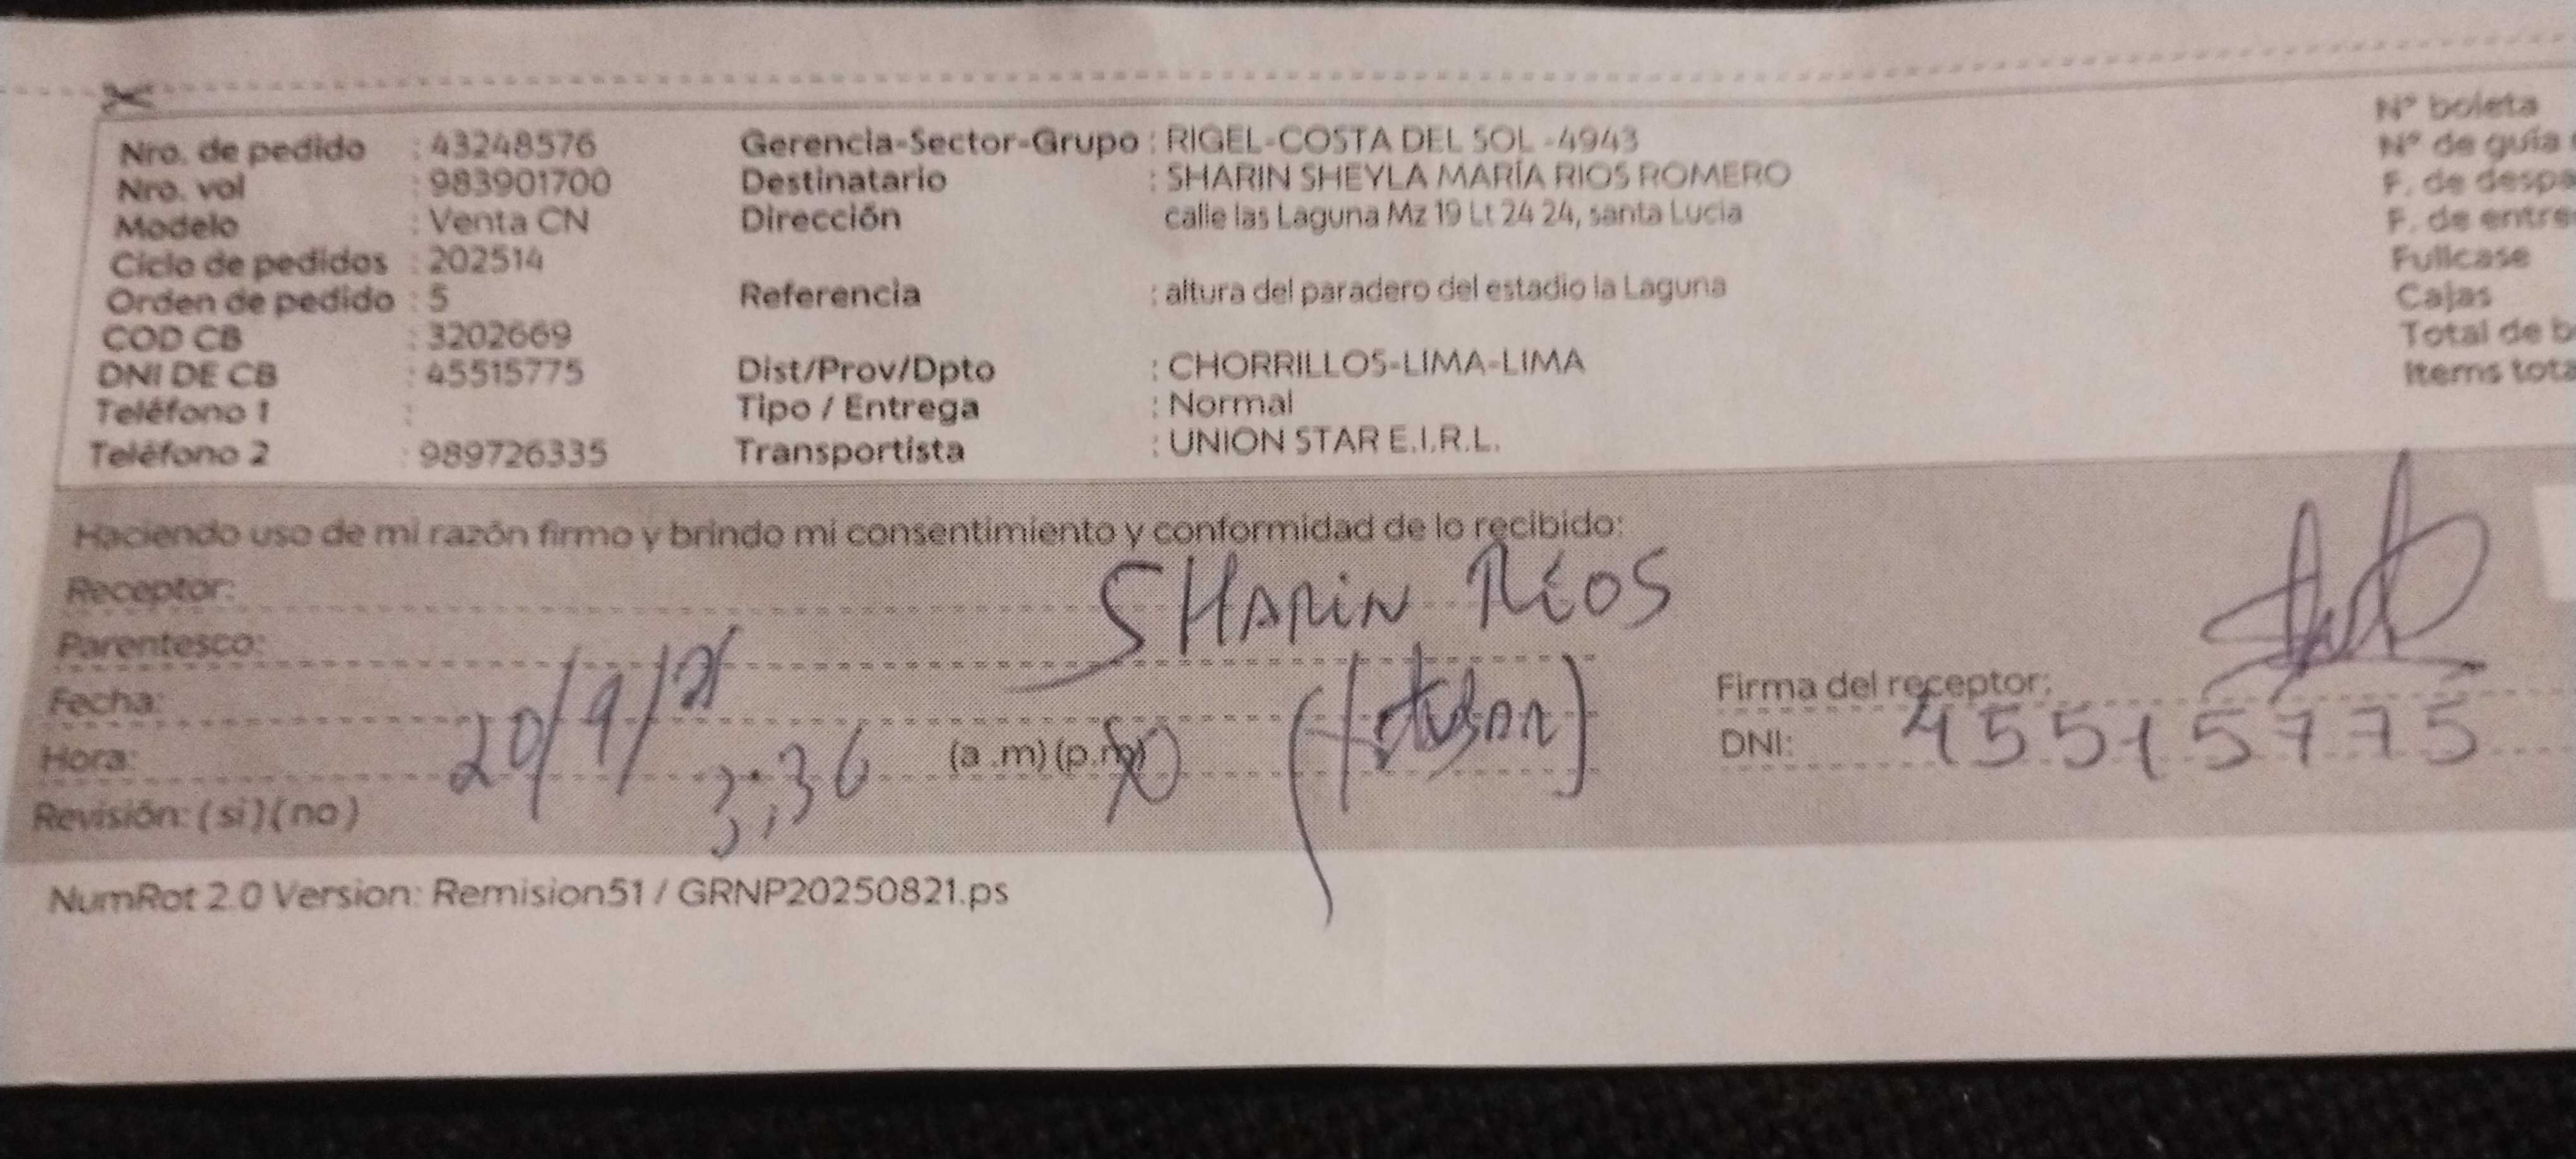 Nro. de pedido : 43248576 Gerencia-Sector-Grupo : RIGEL-COSTA DEL SOL -4943 N° boleta
Nro. vol : 983901700 Destinatario : SHARIN SHEYLA MARÍA RIOS ROMERO N° de guía
Modelo : Venta CN Dirección calle las Laguna Mz 19 Lt 24 24, santa Lucia F. de despa
Ciclo de pedidos : 202514 F. de entre
Orden de pedido : 5 Referencia : altura del paradero del estadio la Laguna Fullcase
COD CB : 3202669 Cajas
DNI DE CB : 45515775 Dist/Prov/Dpto : CHORRILLOS-LIMA-LIMA Total de b
Teléfono 1 : Tipo / Entrega : Normal Items tota
Teléfono 2 : 989726335 Transportista : UNION STAR E.I.R.L.
Haciendo uso de mi razón firmo y brindo mi consentimiento y conformidad de lo recibido:
Receptor: SHARIN RÍOS
Parentesco:
Fecha: 20/9/ Firma del receptor:
Hora: 3:36 (a .m) (p.m) DNI: 45515775
Revisión: (si) (no)
NumRot 2.0 Version: Remision51 / GRNP20250821.ps